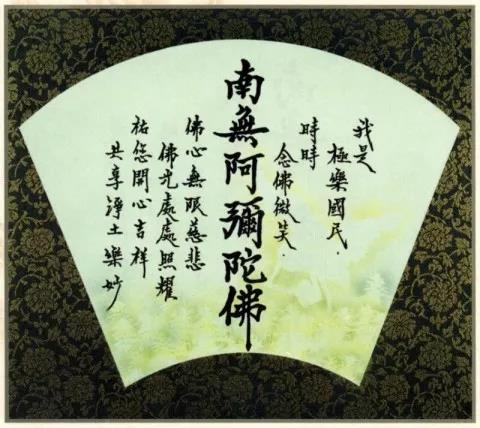 我是
極樂國民．
時時
念佛微笑．
南無阿彌陀佛
佛心無限慈悲
佛光處處照耀
祐您開心吉祥
共享淨土樂妙